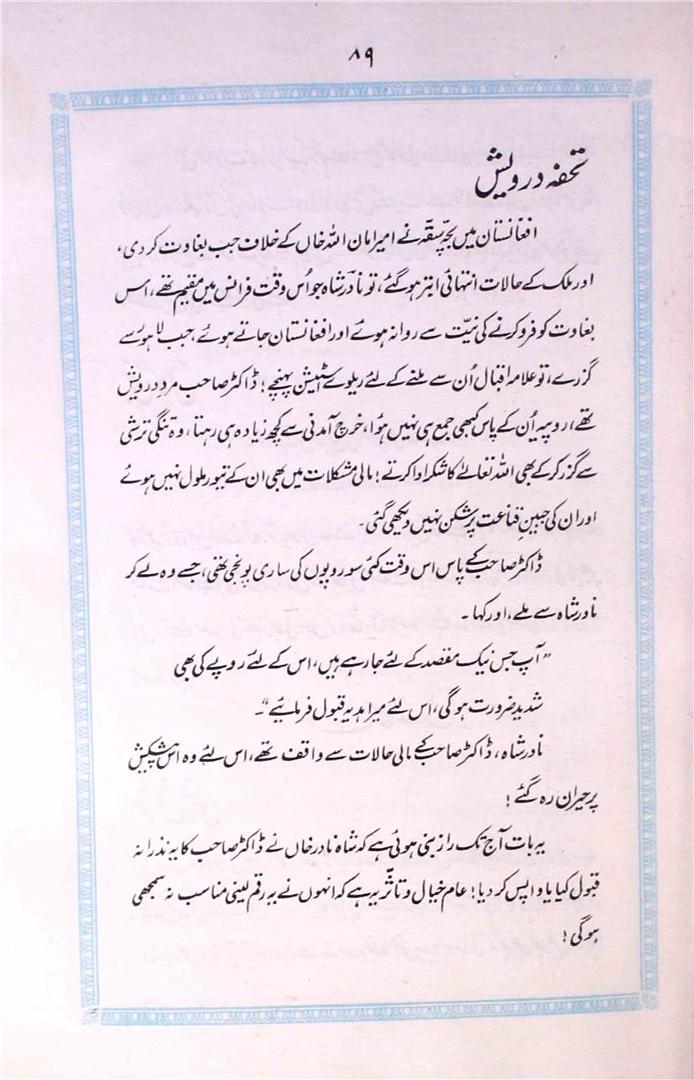 ۸۹
تحفہ درویش
افغانستان میں بچہ سقہ نے امیر امان اللہ خاں کے خلاف جب بغاوت کر دی،
اور ملک کے حالات انتہائی ابتر ہو گئے، تو نادر شاہ جو اُس وقت فرانس میں مقیم تھے، اس
بغاوت کو فرو کرنے کی نیّت سے روانہ ہوئے اور افغانستان جاتے ہوئے، جب لاہور سے
گزرے، تو علامہ اقبال اُن سے ملنے کے لئے ریلوے سٹیشن پہنچے؛ ڈاکٹر صاحب مرد درویش
تھے، روپیہ اُن کے پاس کبھی جمع ہی نہیں ہوُا، خرچ آمدنی سے کچھ زیادہ ہی رہتا، وہ تنگی ترشی
سے گزر کر کے بھی اللہ تعالےٰ کا شکر ادا کرتے؛ مالی مشکلات میں بھی ان کے تیور ملول نہیں ہوئے
اور ان کی جبینِ قناعت پر شکن نہیں دیکھی گئی۔
ڈاکٹر صاحب کے پاس اس وقت کئی سو روپوں کی ساری پونجی تھی، جسے وہ لے کر
نادر شاہ سے ملے، اور کہا۔
”آپ جس نیک مقصد کے لئے جا رہے ہیں، اس کے لئے روپے کی بھی
شدید ضرورت ہو گی، اس لئے میرا ہدیہ قبول فرمائیے“۔
نادر شاہ، ڈاکٹر صاحب کے مالی حالات سے واقف تھے، اس لئے وہ اس پیشکش
پر حیران رہ گئے!
یہ بات آج تک راز بنی ہوئی ہے کہ شاہ نادر خاں نے ڈاکٹر صاحب کا یہ نذرانہ
قبول کیا یا واپس کر دیا؛ عام خیال و تاثر یہ ہے کہ انہوں نے یہ رقم لینی مناسب نہ سمجھی
ہو گی!